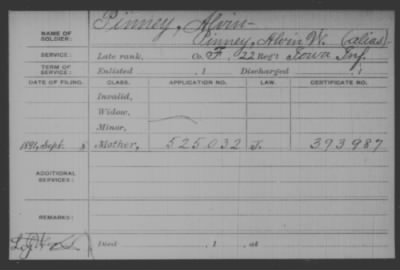 Pinney, Alvin
NAME OF SOLDIER: Pinney, Alvin W. (alias)
SERVICE: Late rank, Co. F, 22 Reg't Iowa Inf.
TERM OF SERVICE: Enlisted , 1 Discharged , 1
DATE OF FILING. CLASS. APPLICATION NO. LAW. CERTIFICATE NO.
Invalid,
Widow,
Minor,
Sept. Mother, 525032 J. 393987
ADDITIONAL SERVICES:
REMARKS:
Died , 1 , at